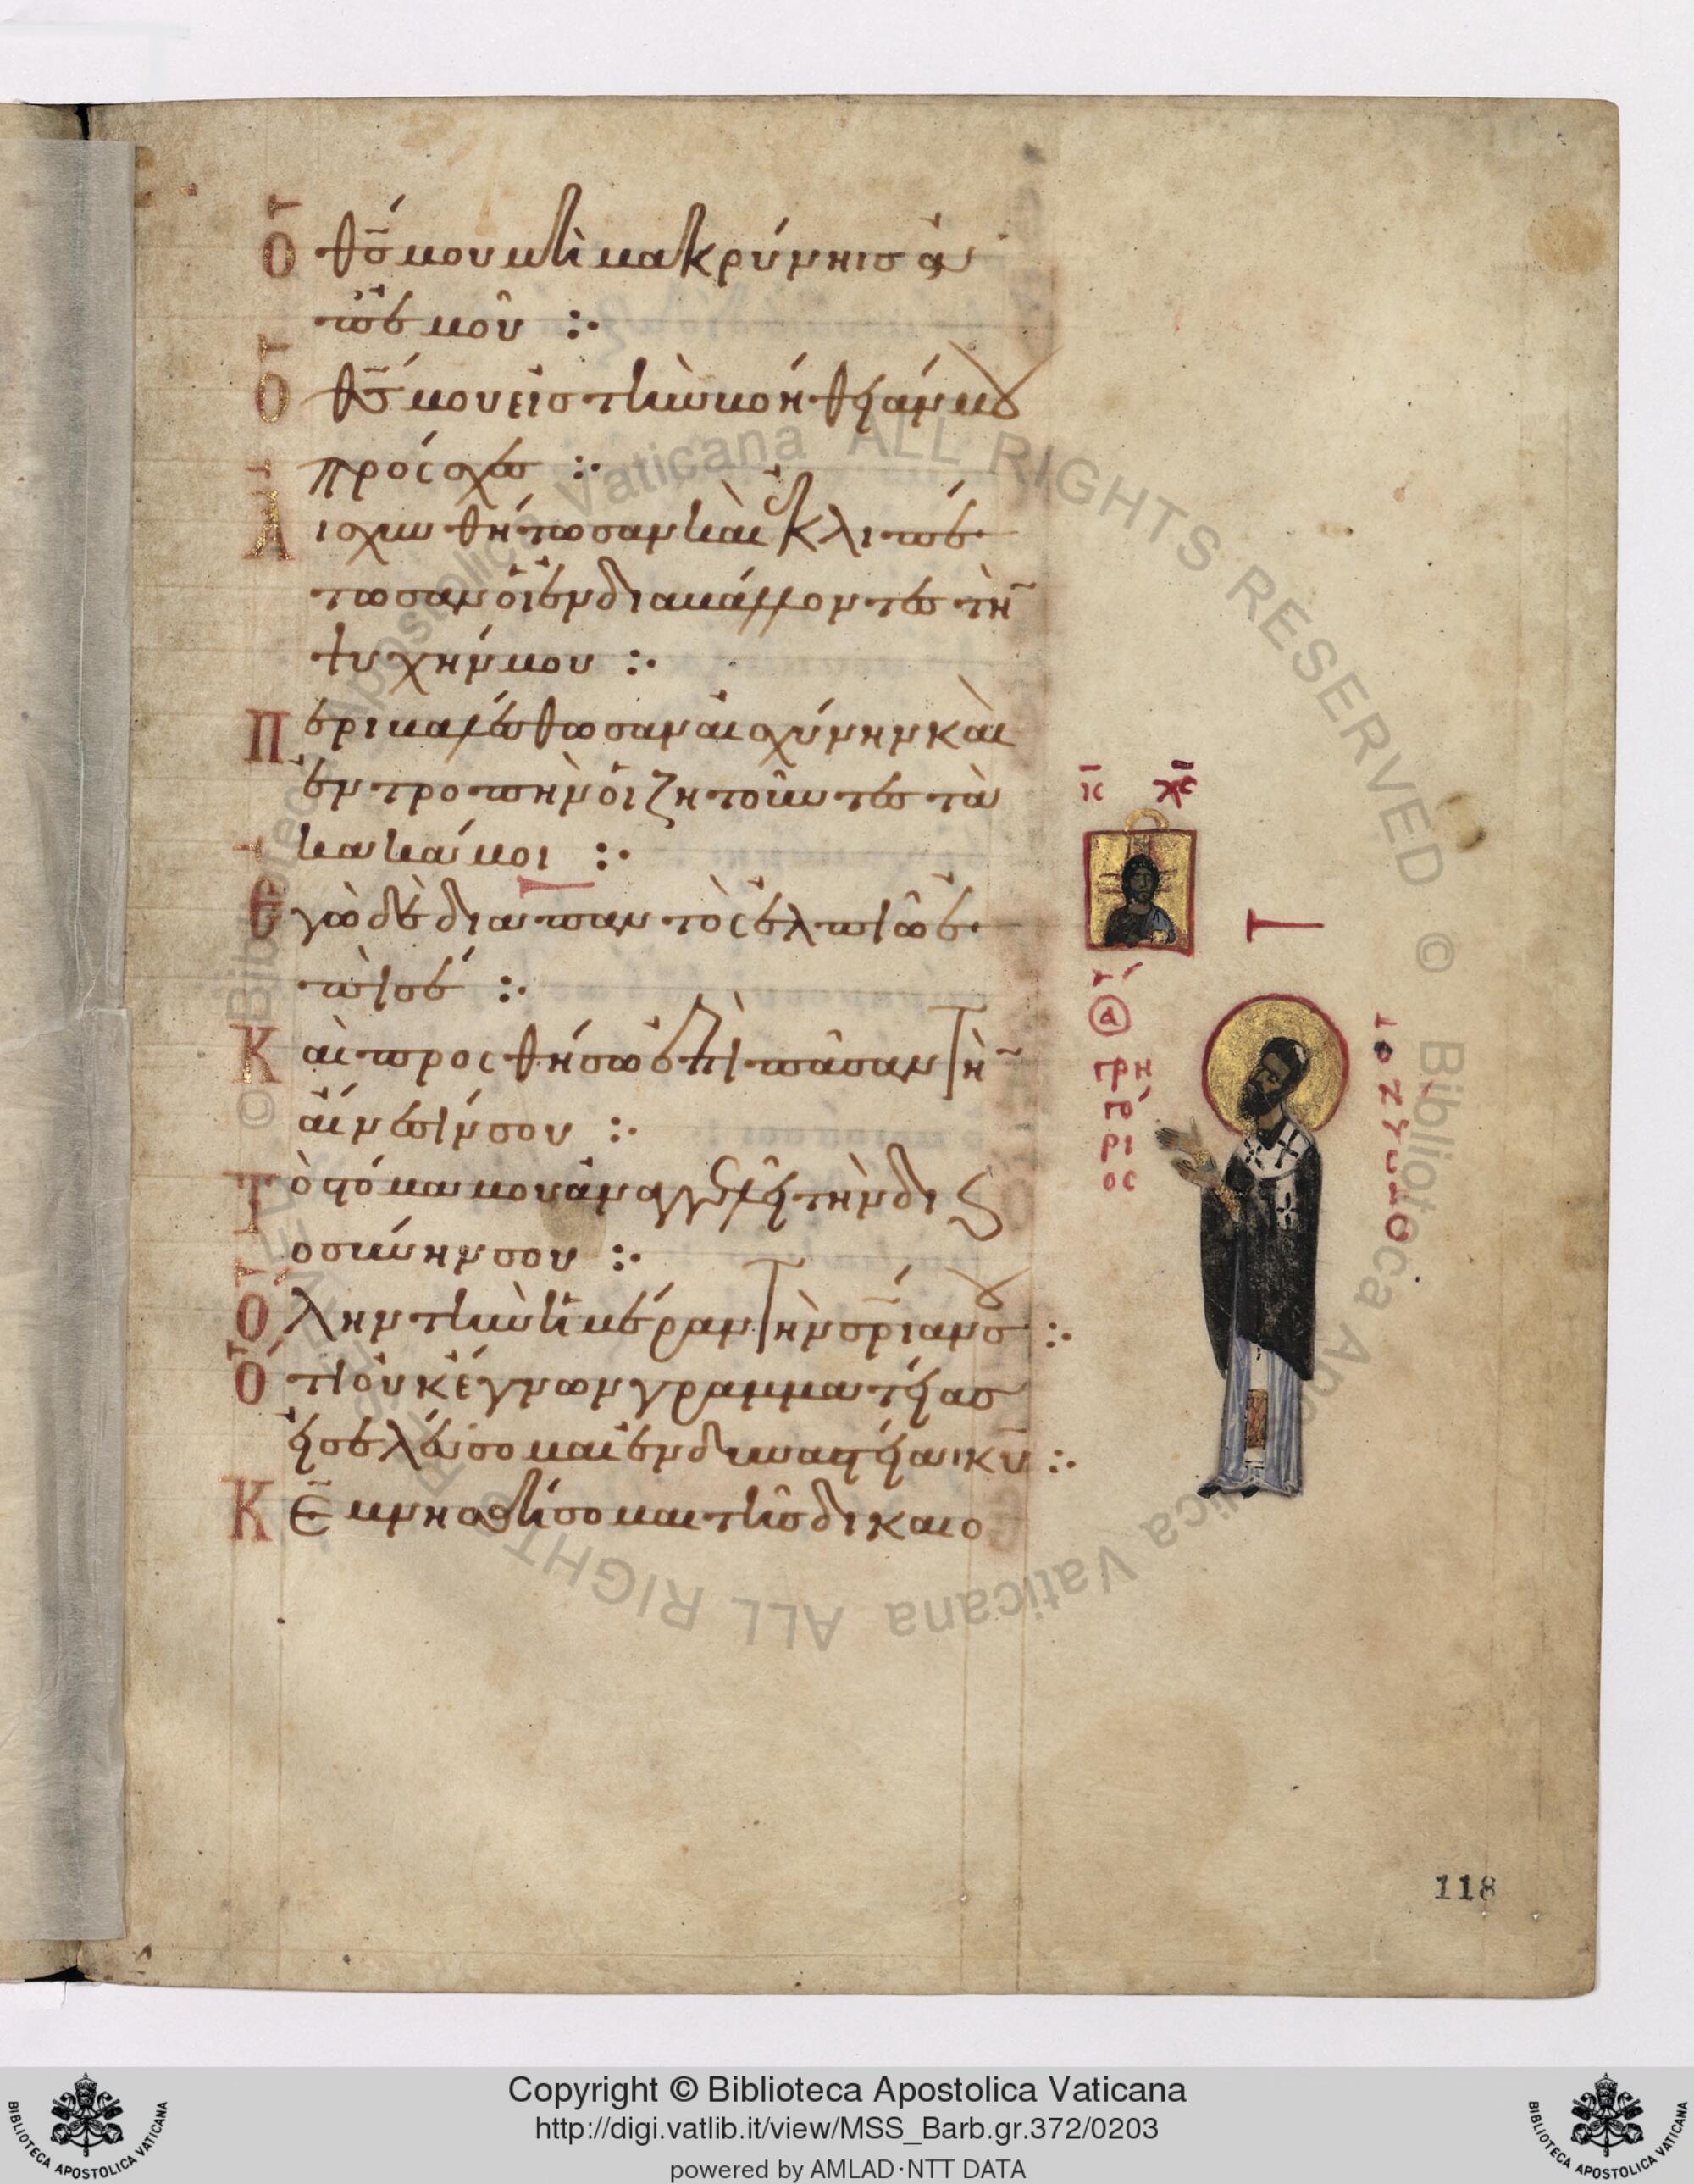 Ὁ θς̄ μου μὴ μακρύνῃς ἀ
π' ἐμοῦ :·
Ὁ θς̄ μου εἰς τὴν βοήθειάν μου
πρόσχες :·
Αἰσχυνθήτωσαν καὶ ἐκλιπέ
τωσαν οἱ ἐνδιαβάλλοντες τὴν
ψυχήν μου :·
Περιβαλέσθωσαν αἰσχύνην καὶ
ἐντροπὴν οἱ ζητοῦντες τὰ
κακά μοι :·
Ἐγὼ δὲ διαπαντὸς ἐλπιῶ ἐ
πὶ σέ :·
Καὶ προσθήσω ἐπὶ πᾶσαν τὴν
αἴνεσίν σου :·
Τὸ στόμα μου ἀναγγελεῖ τὴν δικαι
οσύνην σου :·
Ὅλην τὴν ἡμέραν τὴν σρ̄ίαν σου :·
Ὅτι οὐκ ἔγνων γραμματείας
εἰσελεύσομαι ἐν δυναστείαι κῡ :·
Κε̄ μνησθήσομαι τῆς δικαιο
ῑς χ̄ς
ὁ
ἅ
γρη
γό
ρι
ος
ὁ θεολόγος
118
© Biblioteca Apostolica Vaticana ALL RIGHTS RESERVED © Biblioteca Apostolica Vaticana ALL RIGHTS RESERVED
BIBLIOTECA APOSTOLICA VATICANA
Copyright © Biblioteca Apostolica Vaticana
http://digi.vatlib.it/view/MSS_Barb.gr.372/0203
powered by AMLAD·NTT DATA
BIBLIOTECA APOSTOLICA VATICANA